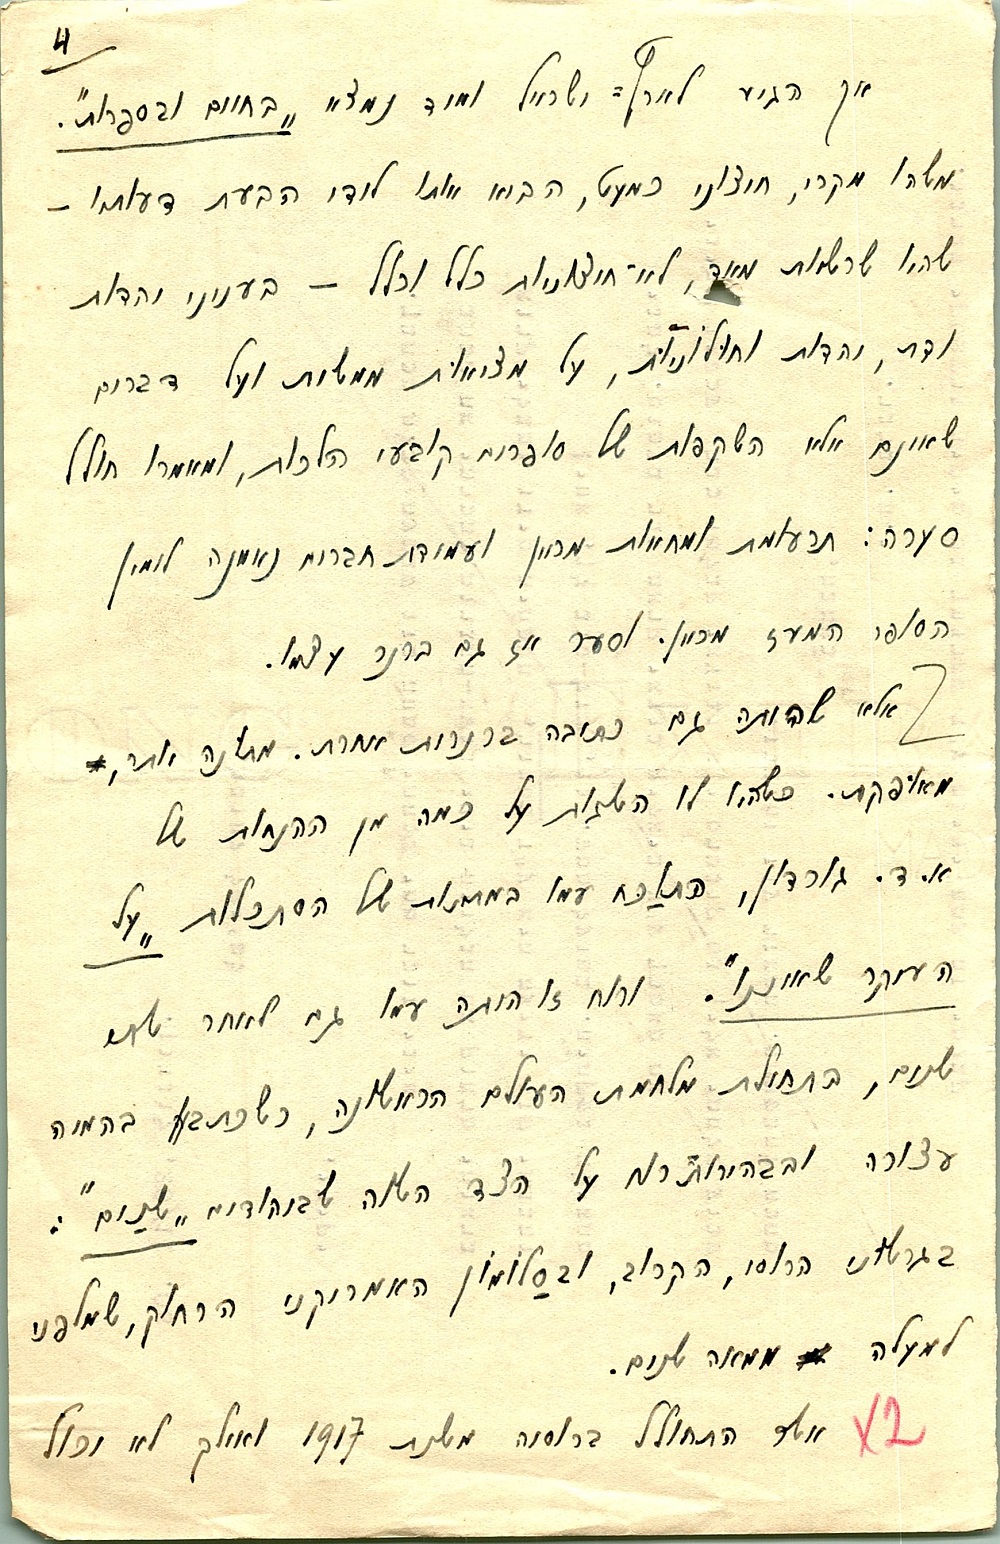 4
אך הגיע לארץ= ישראל ומיד נמצא „בחיים ובספרות".
משהו מקרי, חיצוני כמעט, הביא אותו לידי הבעת דעותיו –
שהיו שרשיות מאד, לא־חיצוניות כלל וכלל – בעניני יהדות
ודת, יהדות וחילוניות, על מציאות ממשית ועל דברים
שאינם אלא השקפות של סופרים קובעי הלכות, ומאמרו חולל
סערה: תרעומת ומחאות מכאן ועמידת חברים נאמנה לימין
הסופר המעז מכאן. וסער אז גם ברנר עצמו.
אלא שהיתה גם כתיבה ברנרית אחרת. מתונה יותר,
מאופקת. כשהיו לו השגות על כמה מן ההנחות של
א. ד. גורדון, התוכח עמו במתינות של הסתכלות „על
העיקר שאיננו". ורוח זו היתה עמו גם לאחר שתי
שנים, בתחילת מלחמת העולם הראשונה, כשכתב בהמיה
עצורה ובבהירות־רוח על הצד השוה שביהודים „שנים":
בגרשוני הרוסי, הקרוב, ובסלומון האמריקני הרחוק, שמלפני
למעלה ממאה שנים.
X2 אשר התחולל ברוסיה משנת 1917 ואילך לא יכול